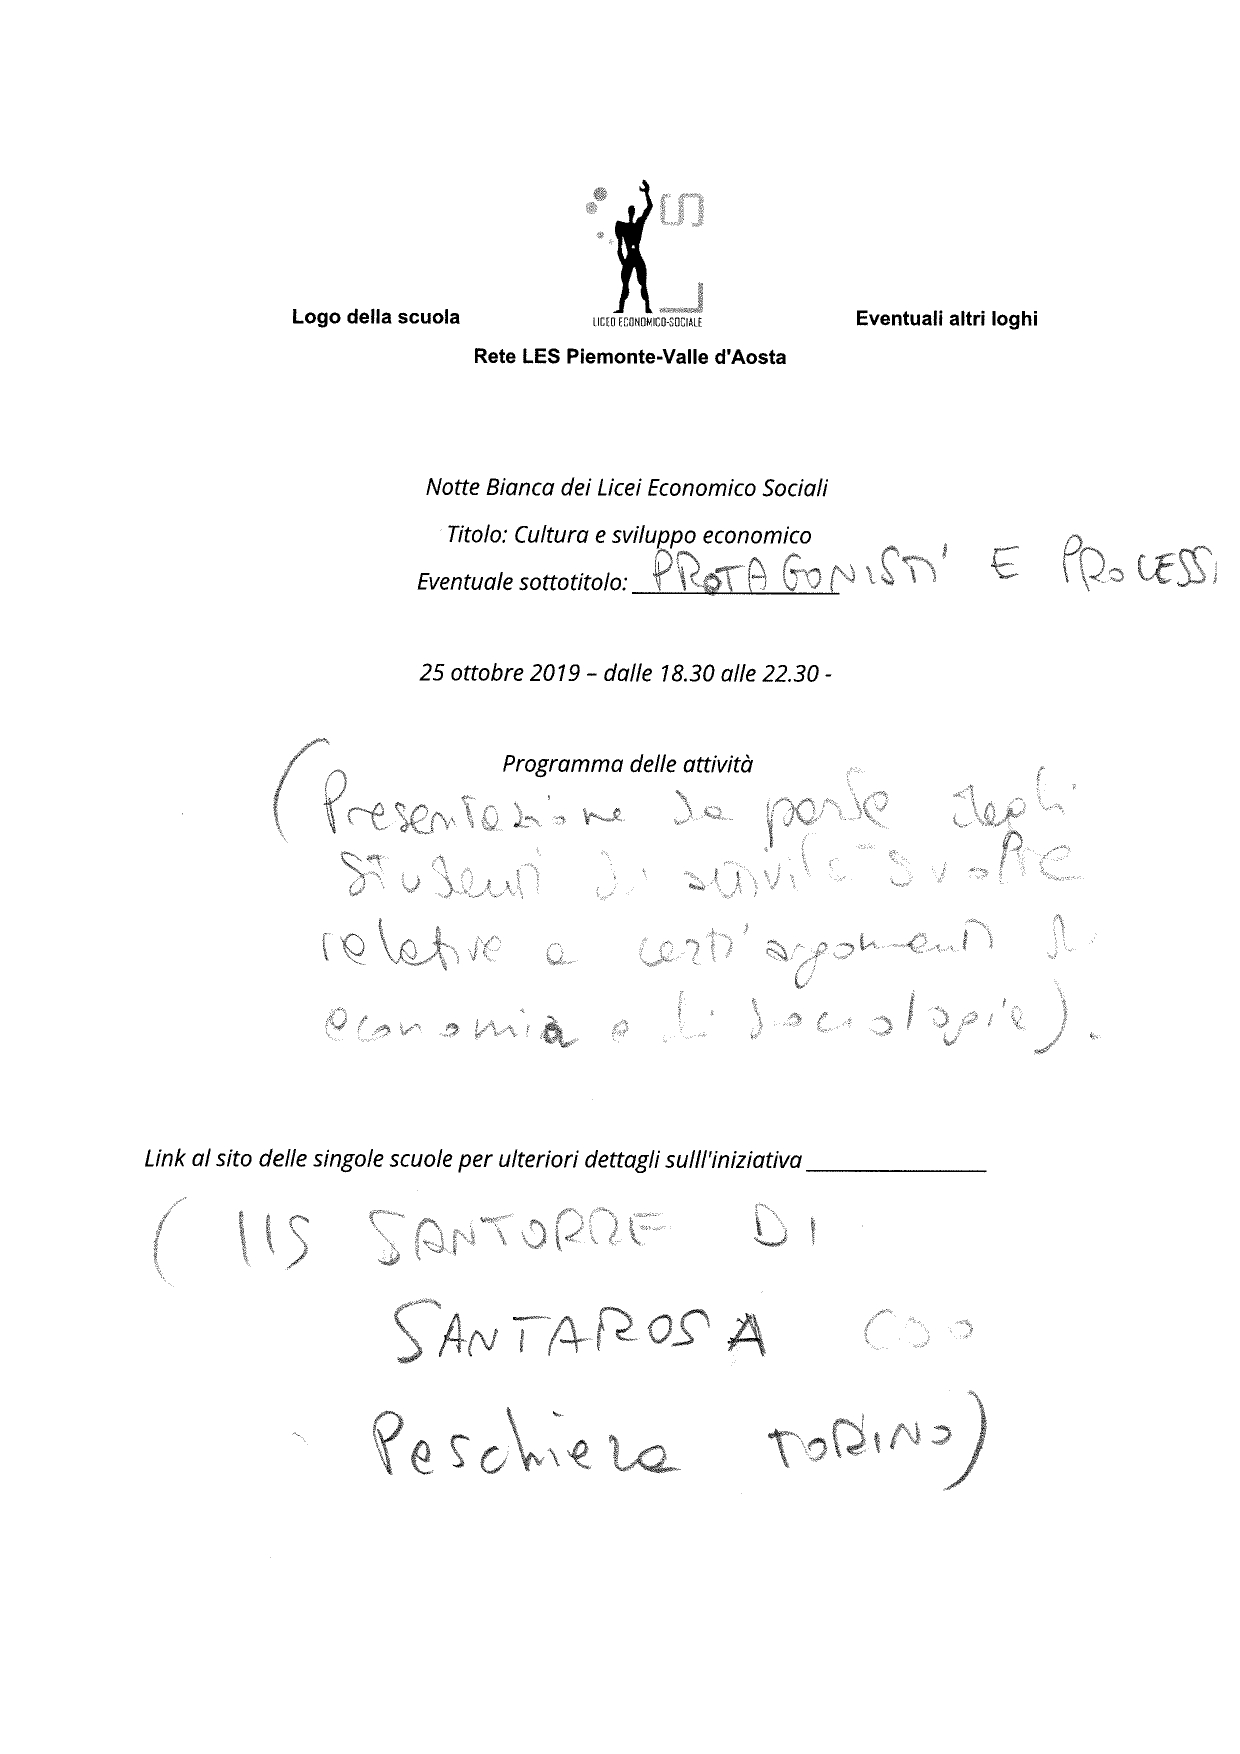 LICEO ECONOMICO-SOCIALE
Logo della scuola
Eventuali altri loghi
Rete LES Piemonte-Valle d'Aosta
Notte Bianca dei Licei Economico Sociali
Titolo: Cultura e sviluppo economico
Eventuale sottotitolo: PROTAGONISTI E PROCESSI
25 ottobre 2019 – dalle 18.30 alle 22.30 -
Programma delle attività
(Presentazione da parte degli
studenti di attività svolte
relative a certi argomenti di
economia e di sociologia).
Link al sito delle singole scuole per ulteriori dettagli sulll'iniziativa
( IIS SANTORRE DI
SANTAROSA CSO
Peschiera TORINO)